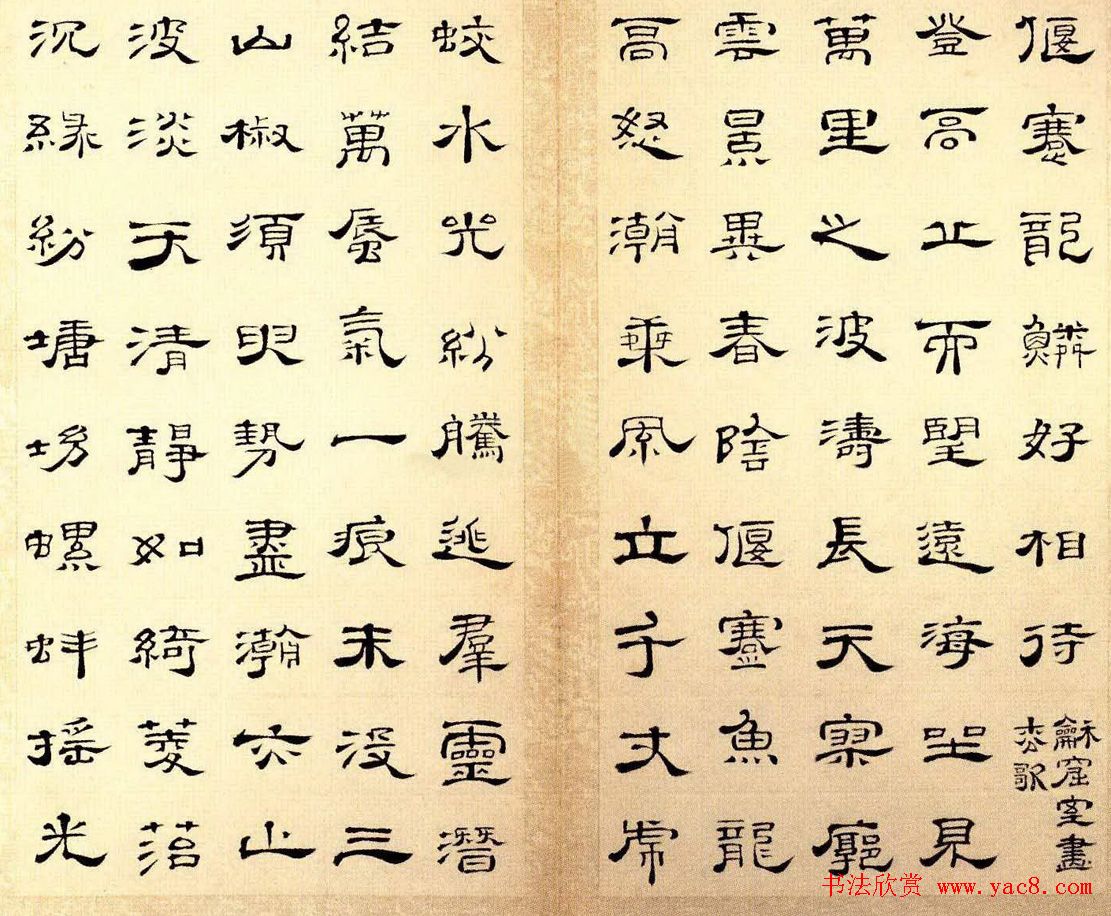 偃蹇龍鱗好相待
龢窟室畫
杢歌
登高丘而望遠海坐見
萬里之波濤長天寥廓
雲景異春陰偃蹇魚龍
高怒潮乘風立千丈常
蛟水光紛騰逃羣靈潛
結萬蜃氣一痕未沒三
山椒須臾勢盡瀚亦止
波淡天清靜如綺菱苕
沉緣紛塘坳螺蚌搖光
书法欣赏 www.yac8.com